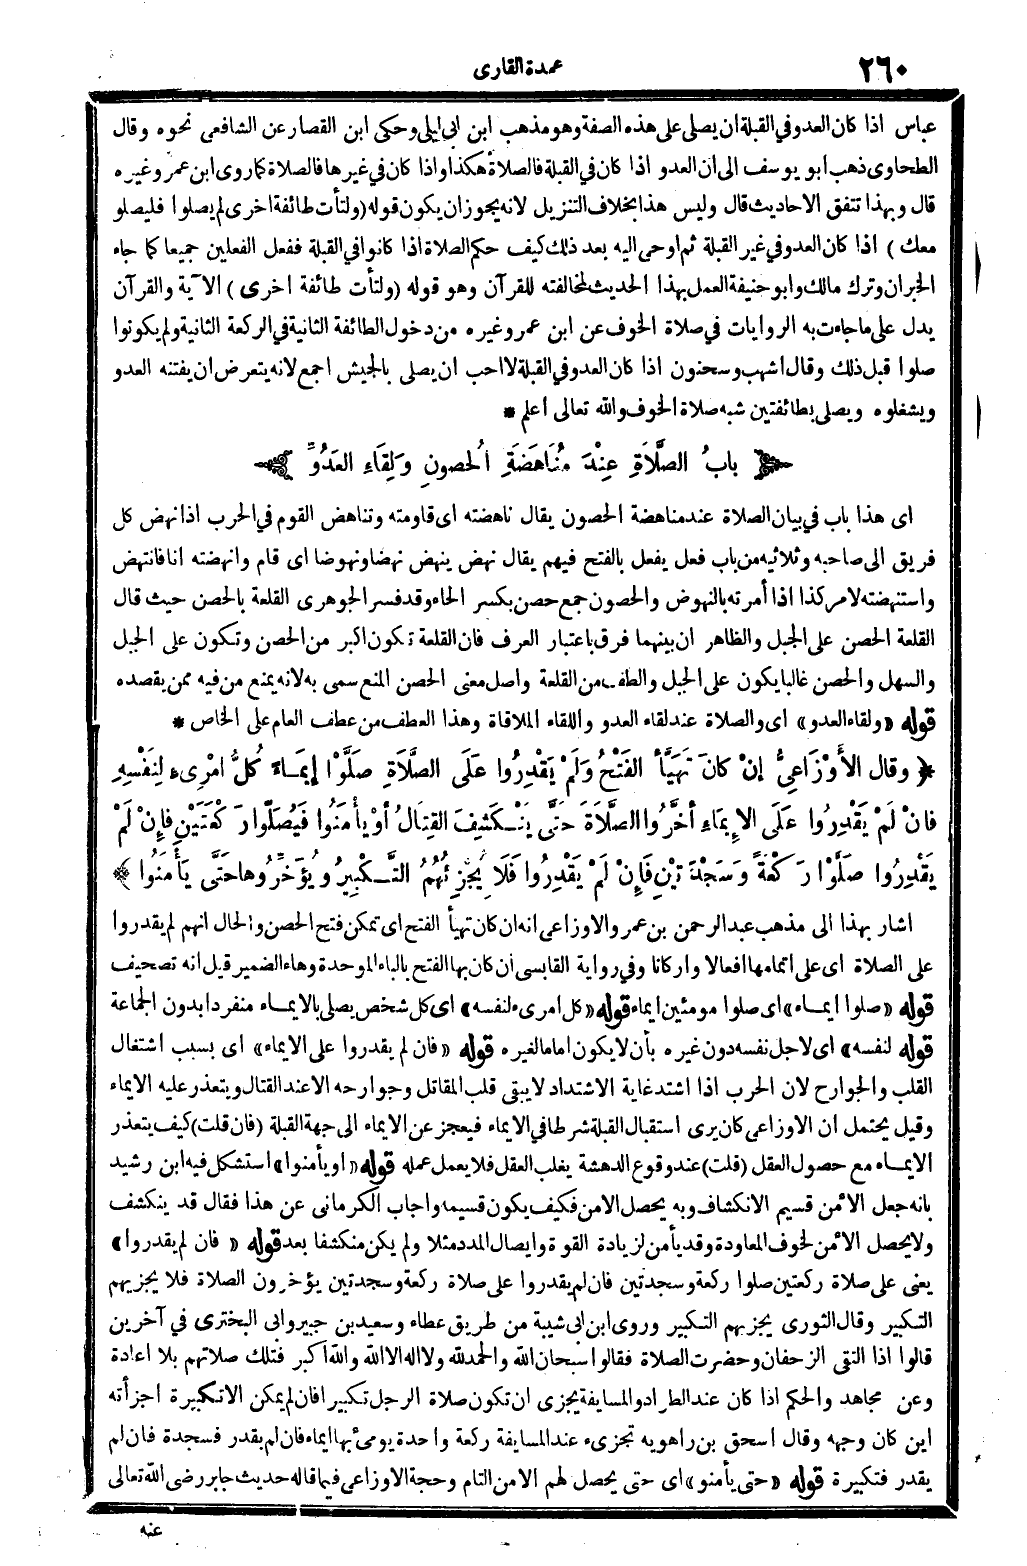 ٢٦٠
عمدة القارى
عباس اذا كان العدو في القبلة ان يصلى على هذه الصفة وهو مذهب ابن ابي ليلى وحكى ابن القصار عن الشافعى نحوه وقال
الطحاوى ذهب ابو يوسف الى ان العدو اذا كان في القبلة فالصلاة هكذا واذا كان في غيرها فالصلاة كما روى ابن عمر وغيره
قال وبهذا تتفق الاحاديث قال وليس هذا بخلاف التنزيل لانه يجوز ان يكون قوله (ولتأت طائفة اخرى لم يصلوا فليصلو
معك) اذا كان العدو في غير القبلة ثم اوحى اليه بعد ذلك كيف حكم الصلاة اذا كانوا في القبلة ففعل الفعلين جميعا كما جاء
الخبران وترك مالك وابو حنيفة العمل بهذا الحديث لمخالفته للقرآن وهو قوله (ولتأت طائفة اخرى) الآية والقرآن
يدل على ما جاءت به الروايات في صلاة الخوف عن ابن عمر وغيره من دخول الطائفة الثانية في الركعة الثانية ولم يكونوا
صلوا قبل ذلك وقال اشهب وسحنون اذا كان العدو في القبلة لا احب ان يصلى بالجيش اجمع لانه يتعرض ان يفتنه العدو
ويشغلوه ويصلى بطائفتين شبه صلاة الخوف والله تعالى أعلم *
بابُ الصَّلَاةِ عِنْدَ مُنَاهَضَةِ الْحصونِ وَلِقَاءِ العَدُوِّ
اى هذا باب في بيان الصلاة عند مناهضة الحصون يقال ناهضته اى قاومته وتناهض القوم في الحرب اذا نهض كل
فريق الى صاحبه وثلاثيه من باب فعل يفعل بالفتح فيهم يقال نهض ينهض نهضا ونهوضا اى قام وانهضته انا فانتهض
واستنهضته لامر كذا اذا أمرته بالنهوض والحصون جمع حصن بكسر الحاء وقد فسر الجوهرى القلعة بالحصن حيث قال
القلعة الحصن على الجبل والظاهر ان بينهما فرق باعتبار العرف فان القلعة تكون اكبر من الحصن وتكون على الجبل
والسهل والحصن غالبا يكون على الجبل والطف من القلعة واصل معنى الحصن المنع سمى به لانه يمنع من فيه ممن يقصده
قوله «ولقاء العدو» اى والصلاة عند لقاء العدو واللقاء الملاقاة وهذا العطف من عطف العام على الخاص *
﴿ وقال الأوْزَاعِىُّ إنْ كانَ تَهَيَّأَ الفَتْحُ وَلَمْ يَقْدِرُوا عَلَى الصَّلَاةِ صَلَّوْا إيمَاءً كُلُّ امْرِىءٍ لِنَفْسِهِ
فانْ لَمْ يَقْدِرُوا عَلَى الإِيمَاءِ أخَّرُوا الصَّلَاةَ حَتَّى يَنْكَشِفَ القِتَالُ أوْ يأْمَنُوا فَيُصَلُّوا رَكْعَتَيْنِ فإِنْ لَمْ
يَقْدِرُوا صَلَّوْا رَكْعَةً وَسَجْدَتَيْنِ فَإِنْ لَمْ يَقْدِرُوا فَلَا يُجْزِئُهُمُ التَّكْبِيرُ ويُؤَخِّرُوها حَتَّى يَأْمَنُوا ﴾
اشار بهذا الى مذهب عبد الرحمن بن عمر والاوزاعى انه ان كان تهيأ الفتح اى تمكن فتح الحصن والحال انهم لم يقدروا
على الصلاة اى على اتمامها افعالا واركانا وفي رواية القابسى ان كان بها الفتح بالباء الموحدة وهاء الضمير قيل انه تصحيف
قوله «صلوا ايماء» اى صلوا مومئين ايماء قوله «كل امرىء لنفسه» اى كل شخص يصلى بالايماء منفردا بدون الجماعة
قوله لنفسه» اى لاجل نفسه دون غيره بأن لا يكون اماما لغيره قوله «فان لم يقدروا على الايماء» اى بسبب اشتغال
القلب والجوارح لان الحرب اذا اشتد غاية الاشتداد لا يبقى قلب المقاتل وجوارحه الا عند القتال ويتعذر عليه الايماء
وقيل يحتمل ان الاوزاعى كان يرى استقبال القبلة شرطا في الايماء فيعجز عن الايماء الى جهة القبلة (فان قلت) كيف يتعذر
الايماء مع حصول العقل (قلت) عند وقوع الدهشة يغلب العقل فلا يعمل عمله قوله «او يأمنوا» استشكل فيه ابن رشيد
بانه جعل الامن قسيم الانكشاف وبه يحصل الامن فكيف يكون قسيمه واجاب الكرمانى عن هذا فقال قد ينكشف
ولا يحصل الامن لخوف المعاودة وقد يأمن لزيادة القوة وايصال المدد مثلا ولم يكن منكشفا بعد قوله «فان لم يقدروا»
يعنى على صلاة ركعتين صلوا ركعة وسجدتين فان لم يقدروا على صلاة ركعة وسجدتين يؤخرون الصلاة فلا يجزيهم
التكبير وقال الثورى يجزيهم التكبير وروى ابن ابى شيبة من طريق عطاء وسعيد بن جبير وابى البخترى في آخرين
قالوا اذا التقى الزحفان وحضرت الصلاة فقالوا سبحان الله والحمد لله ولا اله الا الله والله أكبر فتلك صلاتهم بلا اعادة
وعن مجاهد والحكم اذا كان عند الطراد والمسايفة يجزى ان تكون صلاة الرجل تكبيرا فان لم يمكن الا تكبيرة اجزأته
اين كان وجهه وقال اسحق بن راهويه تجزىء عند المسايفة ركعة واحدة يومىء بها ايماء فان لم يقدر فسجدة فان لم
يقدر فتكبيرة قوله «حتى يأمنو» اى حتى يحصل لهم الامن التام وحجة الاوزاعى فيما قاله حديث جابر رضى الله تعالى
عنه